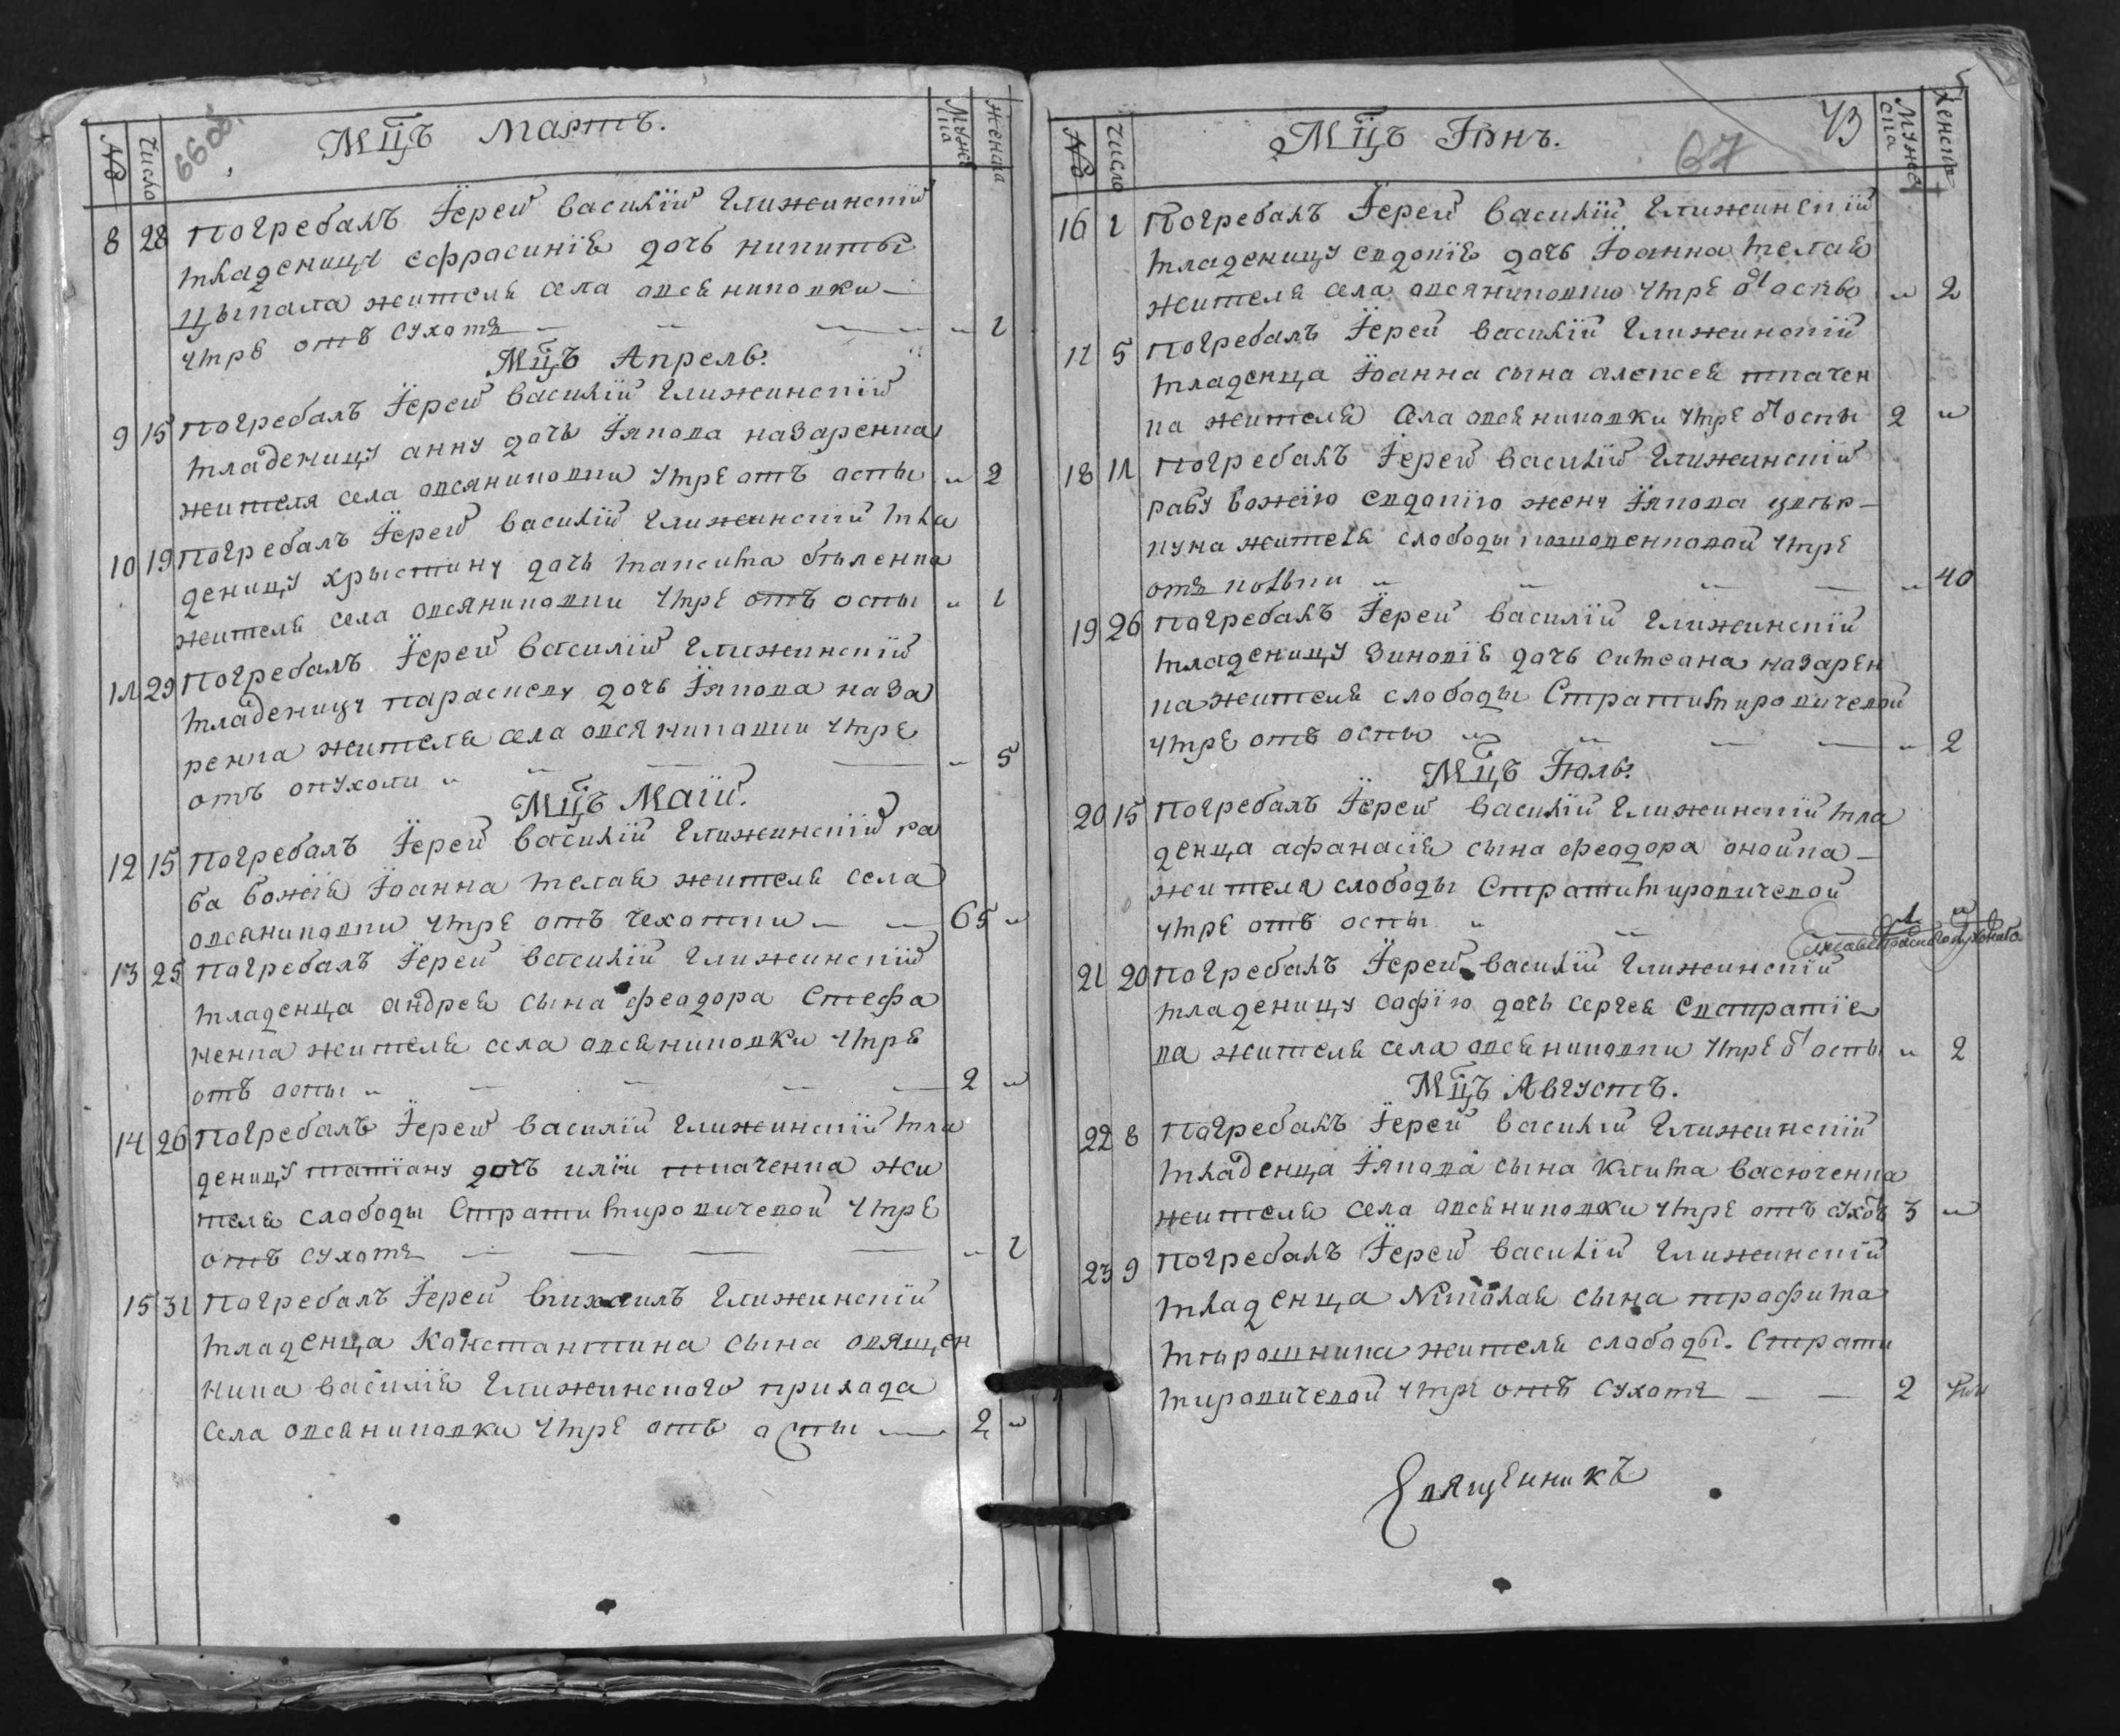 № Числа 66об. Мцъ Мартъ. Мужеска Женска
8 28 Погребалъ Іерей Василій Глижинскій
младеницу ефрасиніѣ дочь никиты
цыпала жителя села овсяниковки — 
умре отъ сухотъ — " 1
Мцъ Апрель.
9 15 Погребалъ Іерей Василій Глижинскій
младеницу анну дочь Іякова назаренка
жителя села овсяниковки умре отъ аспы " 2
10 19 Погребалъ Іерей Василій Глижинскій мла
деницу хрыстину дочь максима беленка
жителя села овсяниковки умре отъ оспы " 1
11 29 Погребалъ Іерей Василій Глижинскій
младеницу параскеву дочь Іякова наза
ренка жителя села овсяниковки умре
отъ опухоли " — " 5
Мцъ Маій.
12 15 Погребалъ Іерей Василій Глижинскій ра
ба божія Іоанна мелая жителя села
овсяниковки умре отъ чехотки — 65 "
13 25 Погребалъ Іерей Василій Глижинскій
младенца андрея сына феодора Стефа
ненка жителя села овсяниковки умре
отъ оспы " — 2 "
14 26 Погребалъ Іерей Василій Глижинскій мла
деницу татіану дочъ иліи ткаченка жи
теля слободы Стратимировичевой умре
отъ сухотъ — " 1
15 31 Погребалъ Іерей Михаилъ Глижинскій
младенца Константина сына овящен
ника Василія Глижинского прихода
села овсяниковки умре отъ аспы — 2 "
№ Число Мцъ Іюнъ. 67 43 Мужеска Женска
16 1 Погребалъ Іерей Василій Глижинскій
младеницу евдокіѣ дочь Іоанна мелая
жителя села овсяниковки умре отъ оспы " 2
17 5 Погребалъ Іерей Василій Глижинскій
младенца Іоанна сына алексея ткачен
ка жителя села овсяниковки умре отъ оспы 2 "
18 11 Погребалъ Іерей Василій Глижинскій
рабу божію евдокію жену Іякова
жителя слободы умре
отъ " — " 40
19 26 Погребалъ Іерей Василій Глижинскій
младеницу Зиновіѣ дочь симеана назарен
ка жителя слободы Стратимировичевой
умре отъ оспы " — " 2
Мцъ Іюль.
20 15 Погребалъ Іерей Василій Глижинскій мла
денца афанасія сына феодора онойка —
жителя слободы Стратимировичевой
умре отъ оспы " — 1 "
21 20 Погребалъ Іерей Василій Глижинскій
младеницу софію дочь сергея евстратіе
ва жителя села овсяниковки умре отъ оспы " 2
Мцъ Августъ.
22 8 Погребалъ Іерей Василій Глижинскій
младенца Іякова сына клима Васюченка
жителя села овсяниковки умре отъ сухотъ 3 "
23 9 Погребалъ Іерей Василій Глижинскій
младенца Николая сына трофима
мирошника жителя слабоды. Страти
мировичевой умре отъ сухотъ — 2
Священникъ